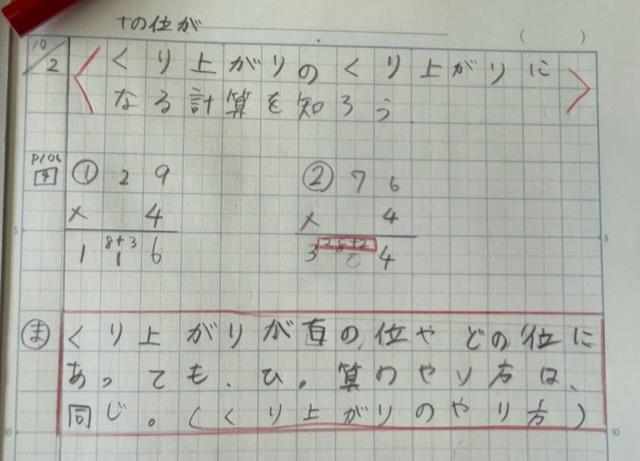 十の位が
( )
10/2
くり上がりのくり上がりに
なる計算を知ろう
P106
4
① 29 ② 76
× 4 × 4
8+3 28+2
116 304
ま くり上がりが百の位やどの位に
あっても、ひっ算のやり方は、
同じ。(くり上がりのやり方)
5 5
10 10